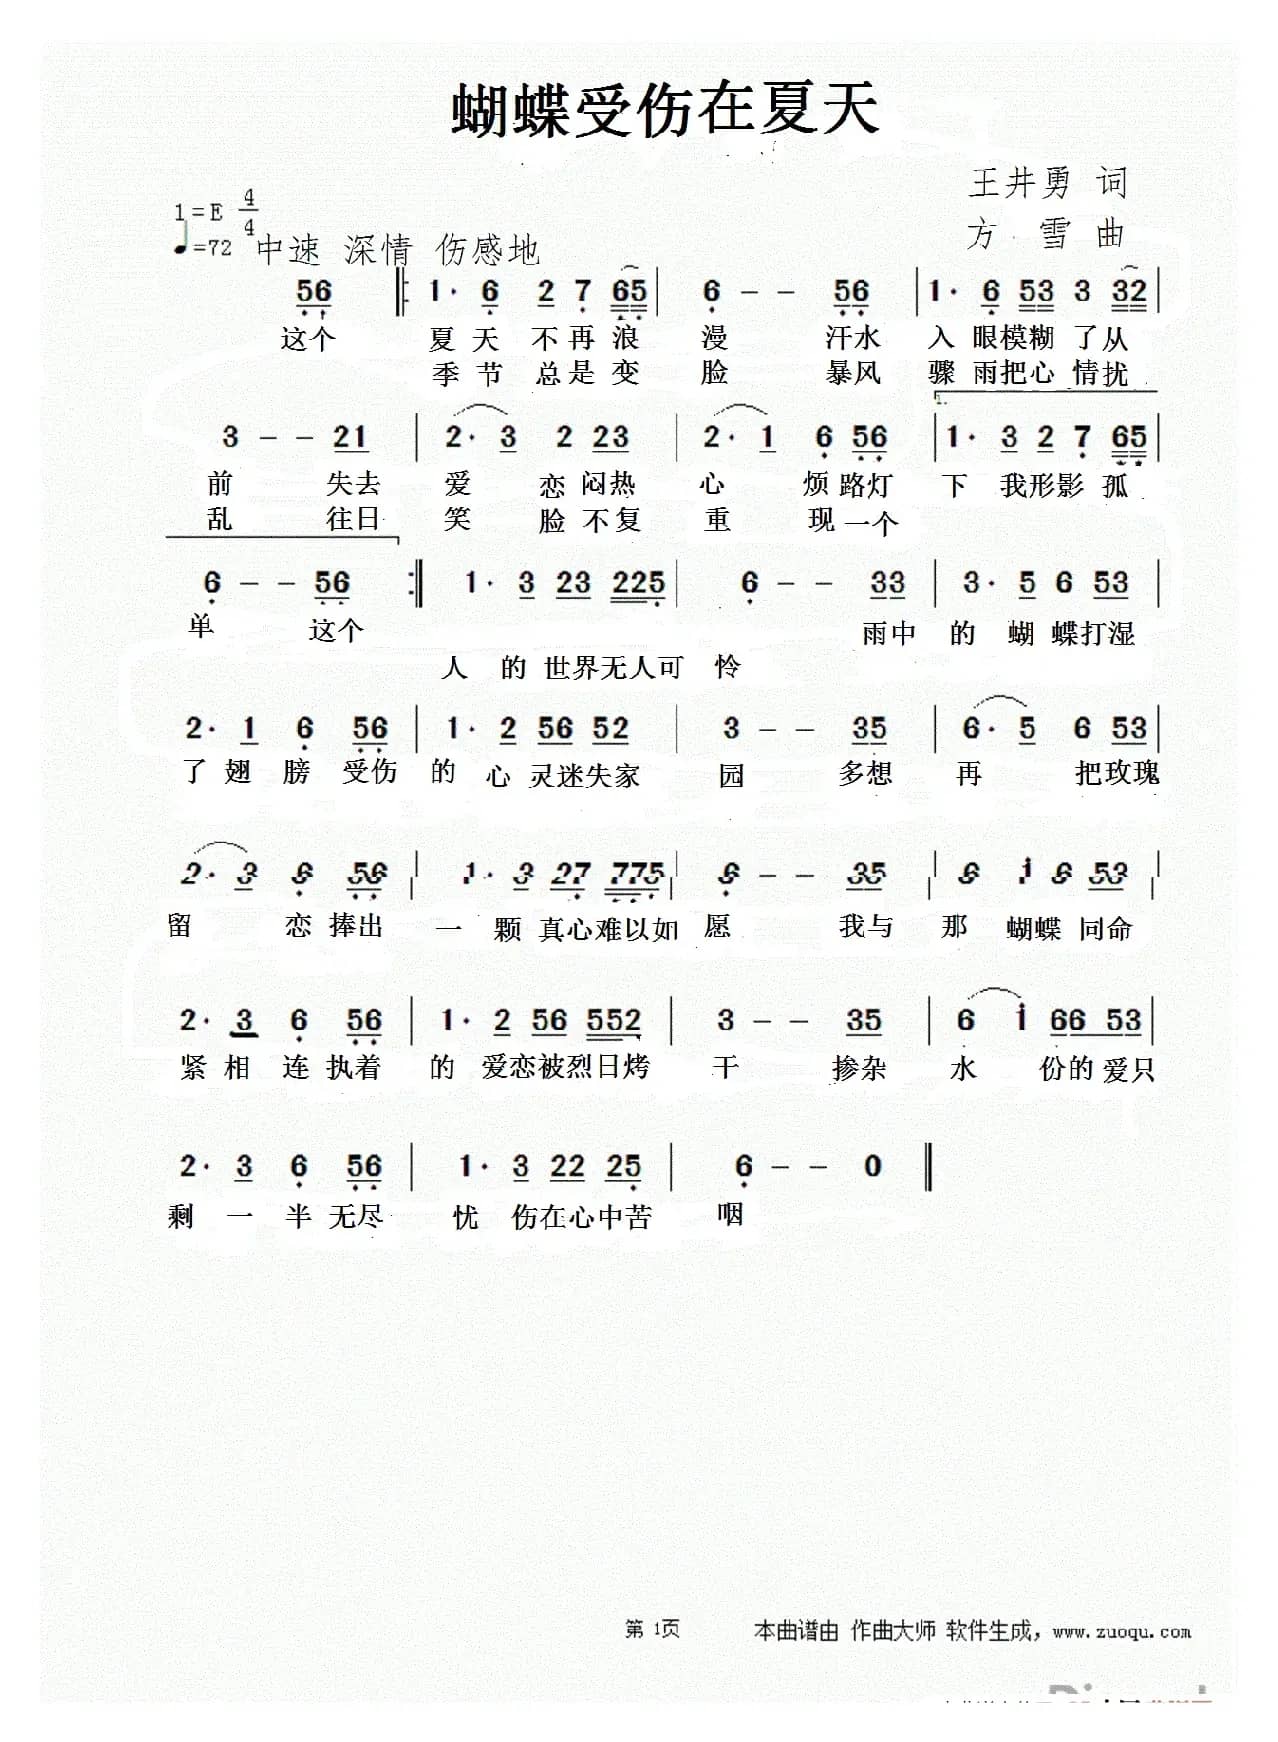 蝴蝶受伤在夏天
王井勇 词
1=E 4/4
方 雪 曲
♩=72 中速 深情 伤感地
56 ‖: 1· 6 2 7 65 | 6 - - 56 | 1· 6 53 3 32 |
这个 夏 天 不 再 浪 漫 汗水 入 眼模糊 了 从
季 节 总 是 变 脸 暴风 骤 雨把心 情 扰
1.
3 - - 21 | 2· 3 2 23 | 2· 1 6 56 | 1· 3 2 7 65 |
前 失去 爱 恋 闷热 心 烦 路灯 下 我形影 孤
乱 往日 笑 脸 不复 重 现 一个
6 - - 56 :‖ 1· 3 23 225 | 6 - - 33 | 3· 5 6 53 |
单 这个 雨中 的 蝴 蝶打湿
人 的 世界无人可 怜
2· 1 6 56 | 1· 2 56 52 | 3 - - 35 | 6· 5 6 53 |
了 翅 膀 受伤 的 心 灵迷失家 园 多想 再 把玫瑰
2· 3 6 56 | 1· 3 27 775 | 6 - - 35 | 6 1 6 53 |
留 恋 捧出 一 颗 真心难以如 愿 我与 那 蝴蝶 同命
2· 3 6 56 | 1· 2 56 552 | 3 - - 35 | 6 1 66 53 |
紧 相 连 执着 的 爱恋被烈日烤 干 掺杂 水 份的 爱只
2· 3 6 56 | 1· 3 22 25 | 6 - - 0 ‖
剩 一 半 无尽 忧 伤在心中苦 咽
第 1页 本曲谱由 作曲大师 软件生成，www.zuoqu.com